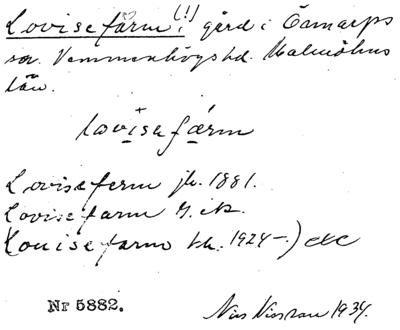 Lovisefarm, (!) gård i Östarps
sn. Vemmenhögs hd. Malmöhus
län.
lovisefärm
Loviseferm jb. 1881.
Lovisefarm G. ek.
(Louisefarm tk. 1924-) etc
Nr 5882.
1934.